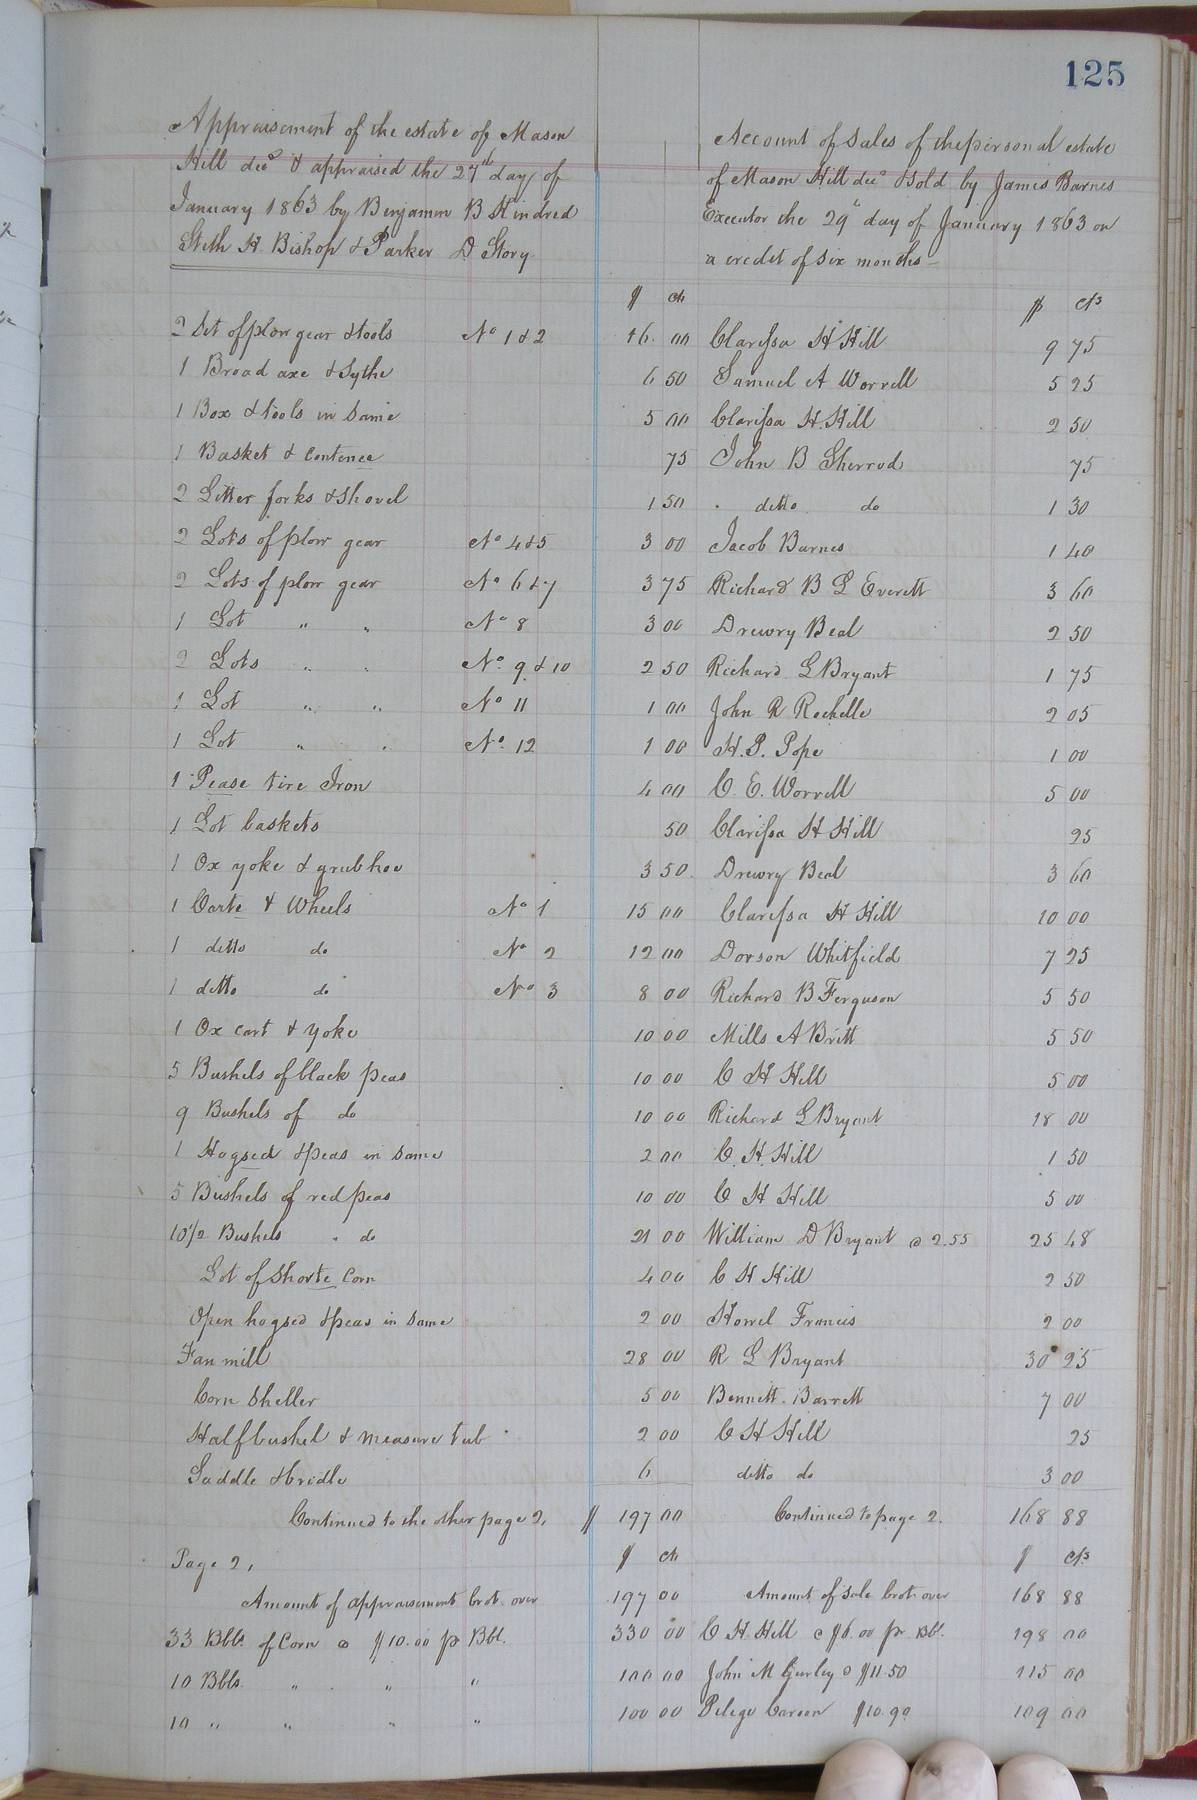 125
Appraisement of the estate of Mason
Hill decd & appraised the 27th day of
January 1863 by Benjamin B Kindred
Steth H. Bishop & Parker D Story
Account of Sales of the personal estate
of Mason Hill decd & sold by James Barnes
Executor the 29th day of January 1863 on
a credit of six months
$ cts $ cts
2 Set of plow gear & tools No 1 & 2 16 00 Clarissa H Hill 9 75
1 Broad axe & Sythe 6 50 Samuel A Worrell 5 25
1 Box & tools in Same 5 00 Clarissa H. Hill 2 50
1 Basket & Contence 75 John B Sherrod 75
2 Litter forks & Shovel 1 50 ditto do 1 30
2 Lots of plow gear No 4 & 5 3 00 Jacob Barnes 1 40
2 Lots of plow gear No 6 & 7 3 75 Richard B L Everett 3 60
1 Lot " " No 8 3 00 Drewry Beal 2 50
2 Lots " " No. 9 & 10 2 50 Richard L Bryant 1 75
1 Lot " " No 11 1 00 John R Rochelle 2 05
1 Lot " " No. 12 1 00 H. P. Pope 1 00
1 Pease tire Iron 4 00 C. E. Worrell 5 00
1 Lot baskets 50 Clarissa H Hill 25
1 Ox yoke & grubhoe 3 50 Drewry Beal 3 60
1 Carte & Wheels No 1 15 00 Clarissa H Hill 10 00
1 ditto do No 2 12 00 Dorson Whitfield 7 25
1 ditto do No 3 8 00 Richard B Ferguson 5 50
1 Ox cart & Yoke 10 00 Mills A Britt 5 50
5 Bushels of black peas 10 00 C H Hill 5 00
9 Bushels of do 10 00 Richard L Bryant 18 00
1 Hogsed & peas in Same 2 00 C. H. Hill 1 50
5 Bushels of red peas 10 00 C H Hill 5 00
10 1/2 Bushels " do 21 00 William D Bryant @ 2.55 25 48
Lot of Shorte Corn 4 00 C H Hill 2 50
Open hogsed & peas in Same 2 00 Howel Francis 2 00
Fan mill 28 00 R L Bryant 30 25
Corn Sheller 5 00 Bennett Barrett 7 00
Half bushel & measure tub 2 00 C H Hill 25
Saddle & bridle 6 ditto do 3 00
Continued to the other page 2, $ 197 00 Continued to page 2. 168 88
Page 2, $ cts $ cts
Amount of appraisement brot. over 197 00 Amount of Sale brot over 168 88
33 Bbls. of Corn @ $10.00 pr Bbl. 330 00 C H Hill @ $6.00 pr Bbl. 198 00
10 Bbls. " " " 100 00 John M Gurley @ $11.50 115 00
10 " " " " 100 00 Pelege Carson $10.90 109 00